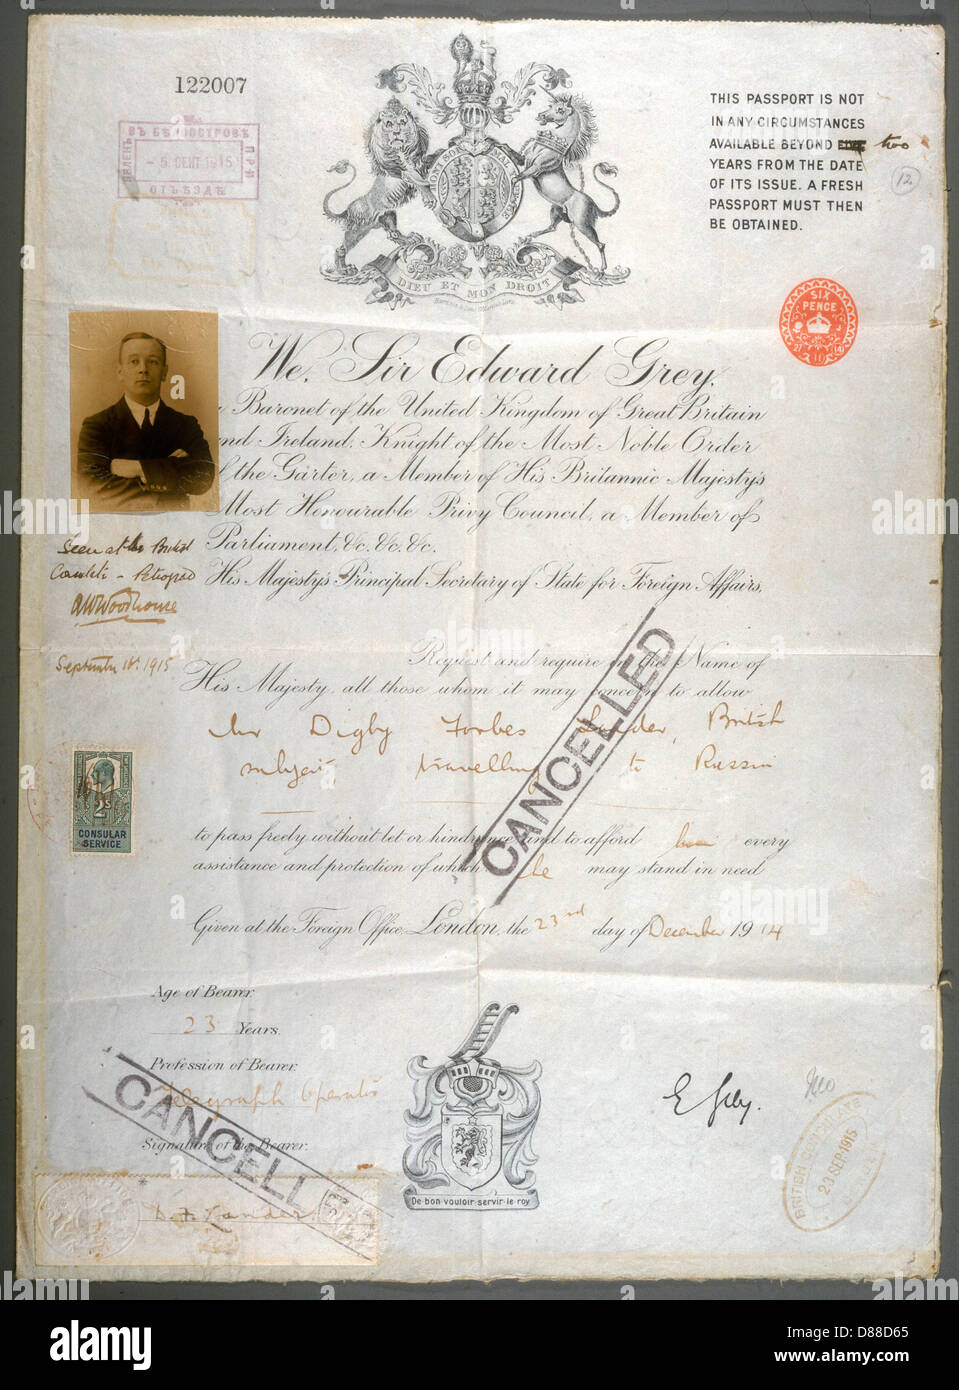 122007
ВЪ БѢЛООСТРОВѢ
ПРИ
- 5 СЕНТ 1915
ОТЪѢЗДѢ
DIEU ET MON DROIT
THIS PASSPORT IS NOT
IN ANY CIRCUMSTANCES
AVAILABLE BEYOND FIVE two
YEARS FROM THE DATE
OF ITS ISSUE. A FRESH
PASSPORT MUST THEN
BE OBTAINED.
12
SIX
PENCE
We, Sir Edward Grey,
a Baronet of the United Kingdom of Great Britain
and Ireland, Knight of the Most Noble Order
of the Garter, a Member of His Britannic Majesty's
Most Honourable Privy Council, a Member of
Parliament, &c. &c. &c.
His Majesty's Principal Secretary of State for Foreign Affairs,
Seen at the British
Consulate - Petrograd
AWWoodhouse
September 18. 1915
Request and require in the Name of
His Majesty, all those whom it may concern to allow
Mr Digby Forbes Lander, British
subject, travelling to Russia
to pass freely without let or hindrance and to afford him every
assistance and protection of which he may stand in need
CANCELLED
2s
CONSULAR
SERVICE
Given at the Foreign Office, London, the 23rd day of December 1914
Age of Bearer.
23 Years.
Profession of Bearer.
Telegraph Operator
Signature of the Bearer.
D. F. Lander.
CANCELLED
De·bon·vouloir·servir·le·roy
E Grey.
BRITISH CONSULATE
23·SEP·1915
alamy
Image ID: D88D65
www.alamy.com